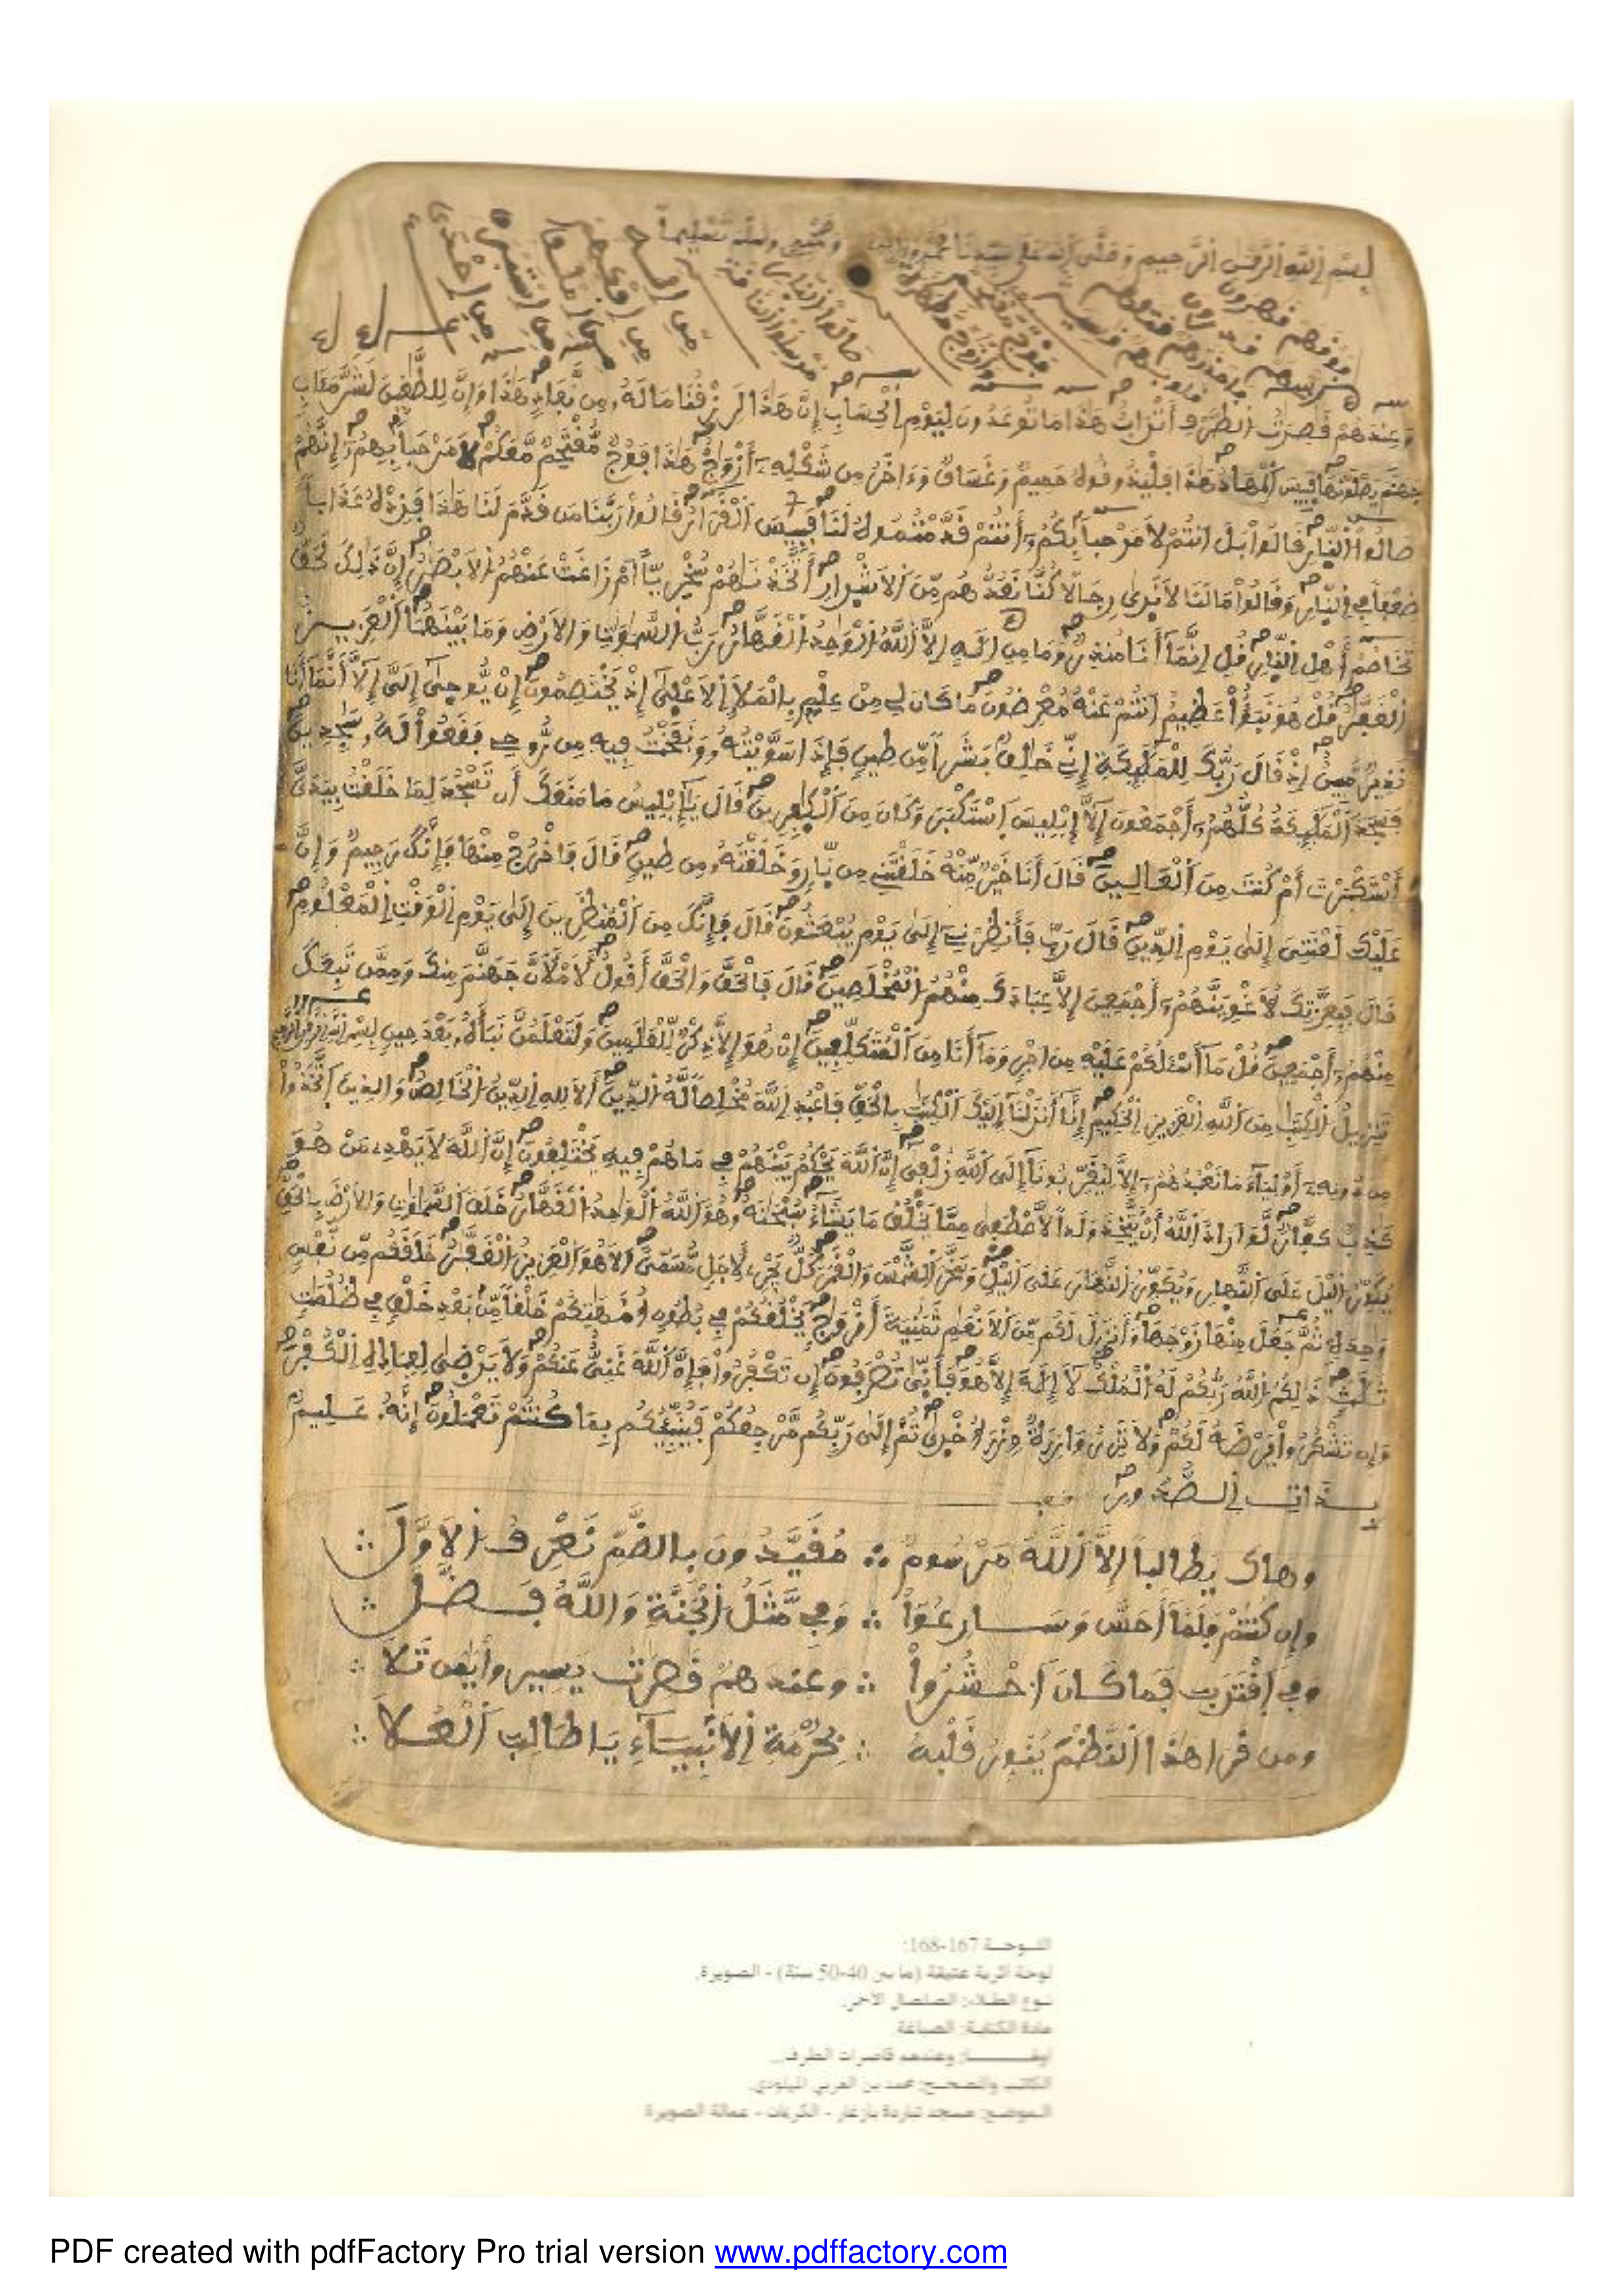 بسم الله الرحمن الرحيم وصلى الله على سيدنا محمد وءاله وصحبه وسلم تسليما
وعندهم قصرت الطرف أتراب هذا ما توعدون ليوم الحساب إن هذا لرزقنا ماله من نفاد هذا وإن للطغين لشر مءاب
جهنم يصلونها فبيس المهاد هذا فليذوقوه حميم وغساق وءاخر من شكله أزواج هذا فوج مقتحم معكم لا مرحبا بهم إنهم
صالوا النار قالوا بل انتم لا مرحبا بكم أنتم قدمتموه لنا فبيس القرار قالوا ربنا من قدم لنا هذا فزده عذابا
ضعفا في النار وقالوا ما لنا لا نرى رجالا كنا نعدهم من الاشرار أتخذنهم سخريا أم زاغت عنهم الابصر إن ذلك لحق
تخاصم أهل النار قل إنما أنا منذر وما من اله الا الله الواحد القهار رب السموت والارض وما بينهما العزيز
الغفر قل هو نبؤا عظيم انتم عنه معرضون ما كان لي من علم بالملإ الاعلى إذ يختصمون إن يوحى إلي إلا أنما أنا
نذير مبين إذ قال ربك للملئكة إني خلق بشرا من طين فإذا سويته ونفخت فيه من روحي فقعوا له سجدين
فسجد الملئكة كلهم أجمعون إلا إبليس استكبر وكان من الكفرين قال يإبليس ما منعك أن تسجد لما خلقت بيدي
أستكبرت أم كنت من العالين قال أنا خير منه خلقتني من نار وخلقته من طين قال فاخرج منها فإنك رجيم وإن
عليك لعنتي إلى يوم الدين قال رب فأنظرني إلى يوم يبعثون قال فإنك من المنظرين إلى يوم الوقت المعلوم
قال فبعزتك لأغوينهم أجمعين إلا عبادك منهم المخلصين قال فالحق والحق أقول لأملأن جهنم منك وممن تبعك
منهم أجمعين قل ما أسئلكم عليه من اجر وما أنا من المتكلفين إن هو إلا ذكر للعلمين ولتعلمن نبأه بعد حين بسم الله الرحمن الرحيم
تنزيل الكتب من الله العزيز الحكيم إنا أنزلنا إليك الكتب بالحق فاعبد الله مخلصا له الدين ألا لله الدين الخالص والذين اتخذوا
من دونه أولياء ما نعبدهم إلا ليقربونا إلى الله زلفى إن الله يحكم بينهم في ما هم فيه يختلفون إن الله لا يهدي من هو
كذب كفار لو اراد الله أن يتخذ ولدا لاصطفى مما يخلق ما يشاء سبحنه هو الله الواحد القهار خلق السموت والارض بالحق
يكور اليل على النهار ويكور النهار على اليل وسخر الشمس والقمر كل يجري لأجل مسمى الا هو العزيز الغفر خلقكم من نفس
وحدة ثم جعل منها زوجها وأنزل لكم من الانعم ثمنية أزوج يخلقكم في بطون أمهتكم خلقا من بعد خلق في ظلمت
ثلث ذلكم الله ربكم له الملك لا إله إلا هو فأنى تصرفون إن تكفروا فإن الله غني عنكم ولا يرضى لعباده الكفر
وإن تشكروا يرضه لكم ولا تزر وازرة وزر اخرى ثم إلى ربكم مرجعكم فينبئكم بما كنتم تعملون إنه عليم
بذات الصدور
وهاك يطالبا إلا الله مرسوم ∴ مقيدون بالضم نعرف الاول ∴
وإن كنتم فلما أحس وسارعوا ∴ وفي مثل الجنة والله فضل ∴
وفي اقتربت فما كان احشروا ∴ وعندهم قصرت يسير وأيقن تلا ∴
ومن قرا هذا النظم ينور قلبه ∴ بحرمة الانبياء يا طالب العلا ∴
اللوحة 167-168:
لوحة أثرية عتيقة (ما بين 40-50 سنة) - الصويرة.
نوع الطلاء: الصلصال الأحر.
مادة الكتابة: الصباغة
وعندهم قاصرات الطرف...
الكاتب والمصحح: محمد بن العربي الميلودي.
- الكريمات - عمالة الصويرة
PDF created with pdfFactory Pro trial version www.pdffactory.com